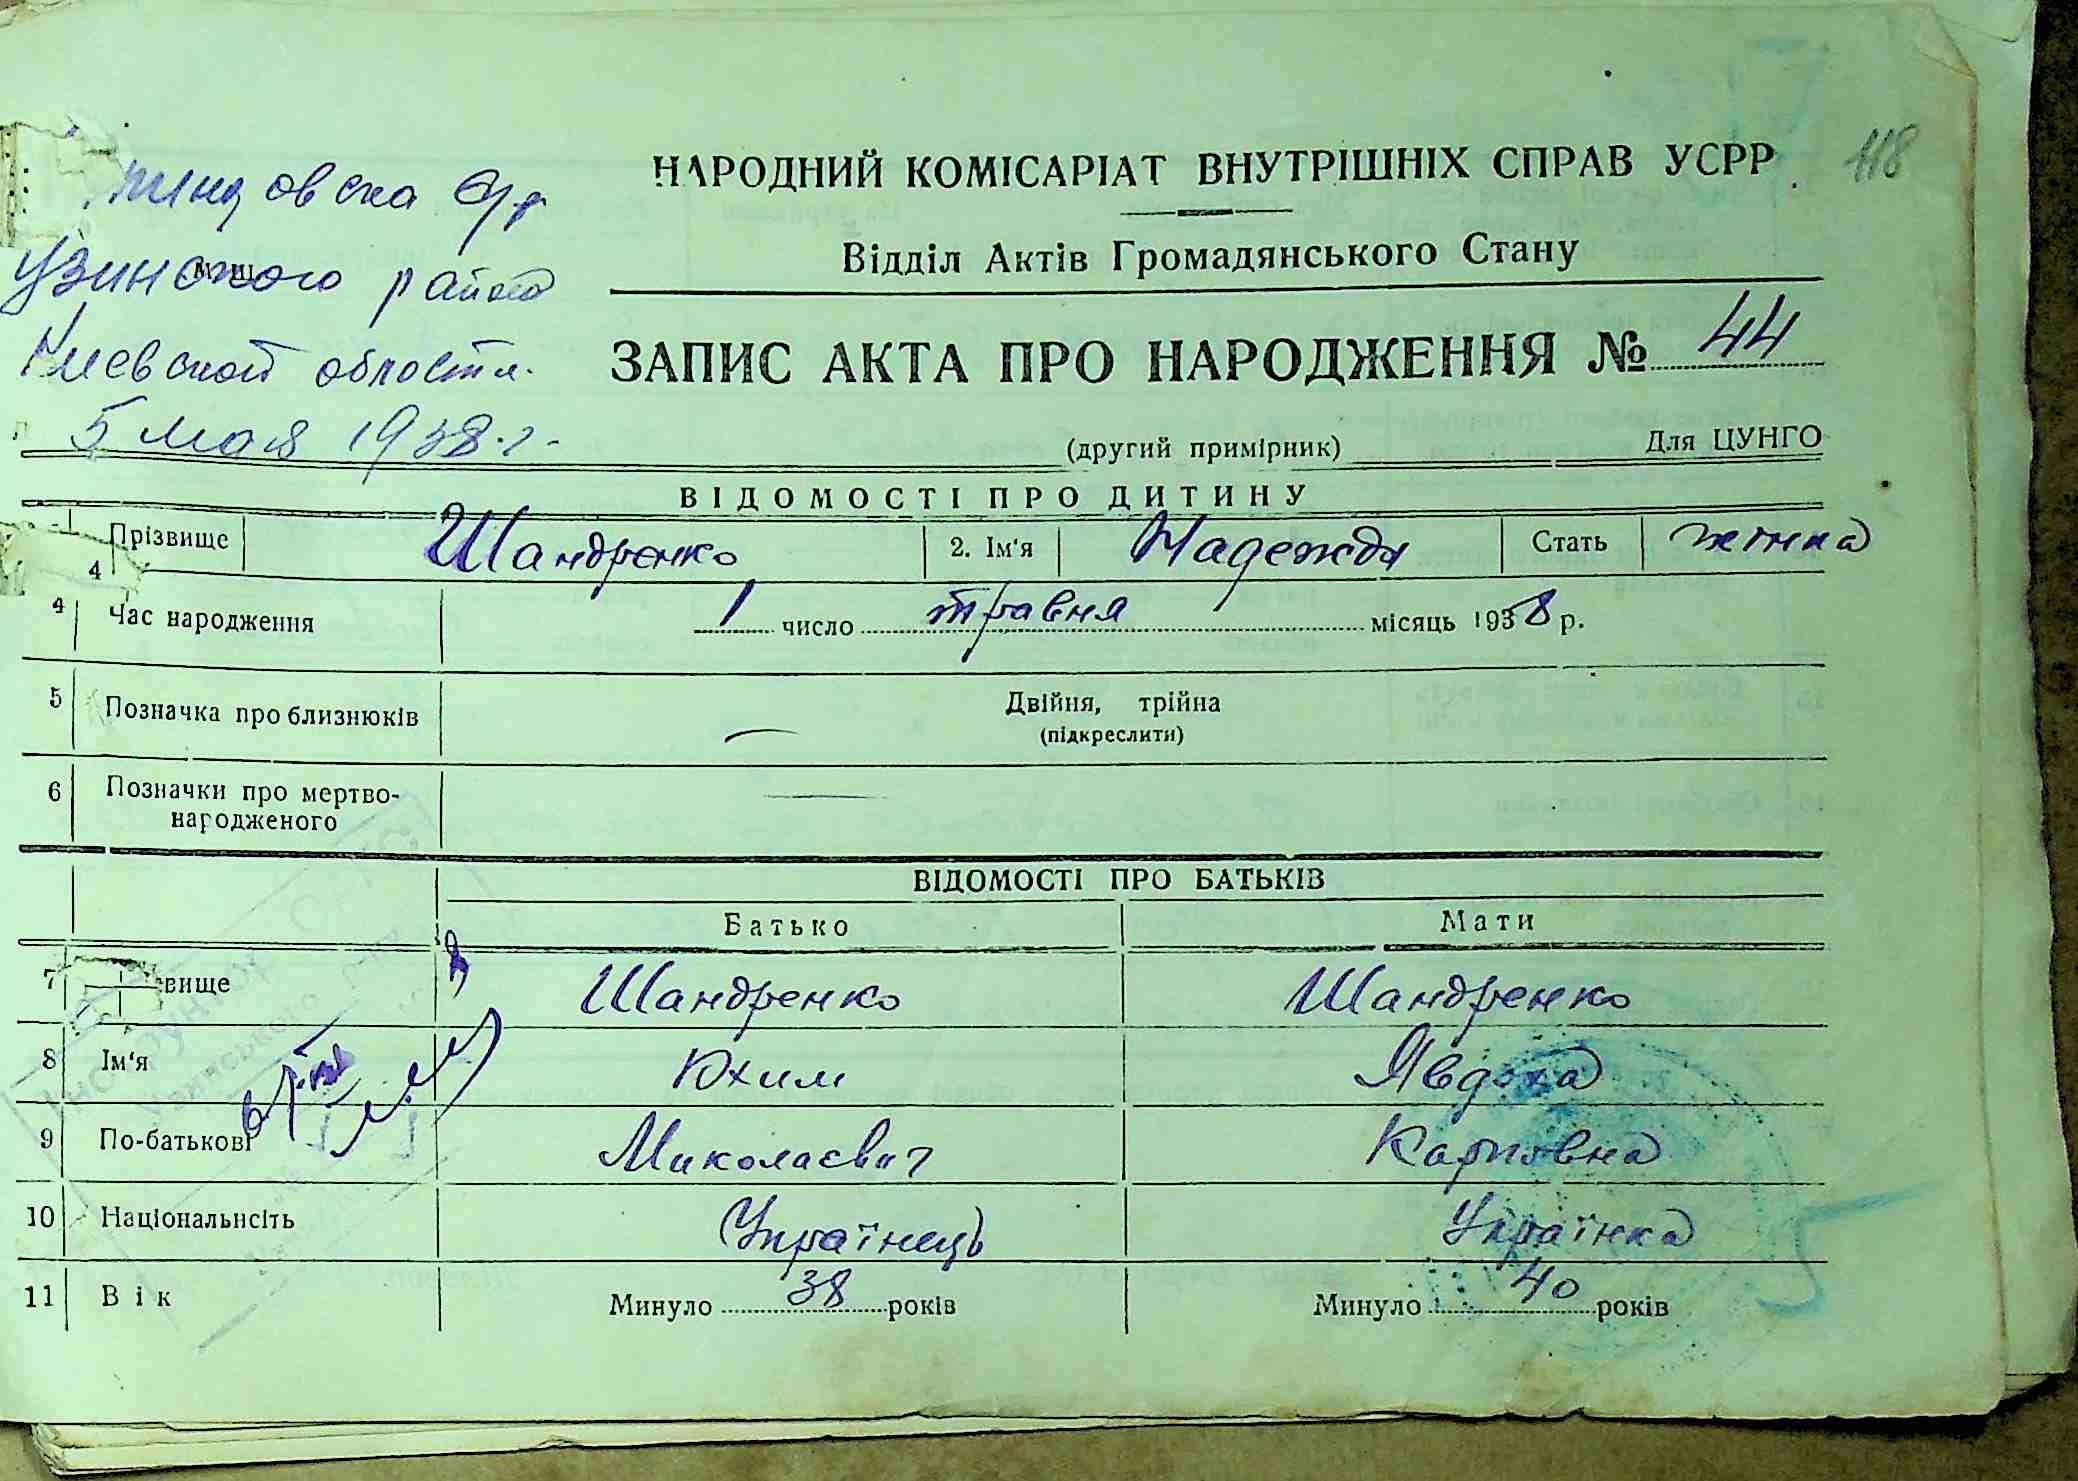 НАРОДНИЙ КОМІСАРІАТ ВНУТРІШНІХ СПРАВ УСРР
118
Відділ Актів Громадянського Стану
Узинского района
Киевской области.
5 мая 1938 г.
ЗАПИС АКТА ПРО НАРОДЖЕННЯ № 44
(другий примірник) Для ЦУНГО
ВІДОМОСТІ ПРО ДИТИНУ
Прізвище Шандренко 2. Ім'я Надежда Стать жінка
4
4 Час народження 1 число травня місяць 1938 р.
5 Позначка про близнюків Двійня, трійна
(підкреслити)
6 Позначки про мертво-
народженого
ВІДОМОСТІ ПРО БАТЬКІВ
Батько Мати
7 вище Шандренко Шандренко
8 Ім'я Юхим Явдоха
9 По-батькові Миколаєвич Карповна
10 Національнсіть Українець Українка
11 Вік Минуло 38 років Минуло 40 років